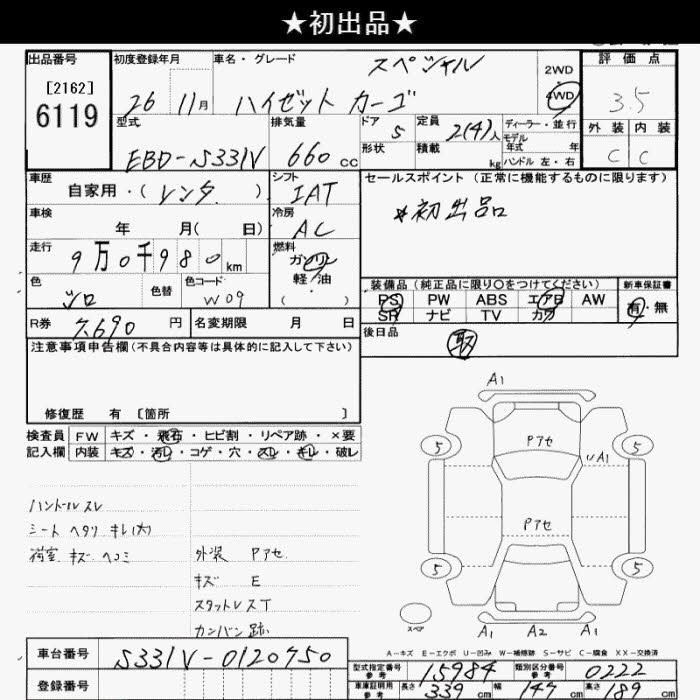 ★初出品★
出品番号
[2162]
6119
初度登録年月
26 11月
車名・グレード
スペシャル
ハイゼット カーゴ
2WD
4WD
評価点
3.5
外装 内装
C C
型式
EBD-S331V
排気量
660 cc
ドア
5
形状
定員
2(4)人
積載
kg
ディーラー・並行
モデル
年式 年
ハンドル 左・右
車歴
自家用・(レンタ)
シフト
IAT
セールスポイント(正常に機能するものに限ります)
*初出品
車検
年 月(日)
冷房
AC
走行
9万0千980km
燃料
ガソリン
軽油
( )
色
シロ
色替
色コード
W09
装備品(純正品に限り○をつけてください)
PS PW ABS エアB AW
SR ナビ TV カワ
新車保証書
有・無
R券
7,690円
名変期限 月 日
後日品
取
注意事項申告欄(不具合内容等は具体的に記入して下さい)
修復歴 有 [箇所 ]
検査員
記入欄
FW キズ・飛石・ヒビ割・リペア跡・×要
内装 キズ・汚レ・コゲ・穴・スレ・キレ・破レ
ハンドルスレ
シート ヘタリ キレ(大)
荷室 キズ ヘコミ
外装 Pアセ
キズ E
スタットレスT
カンバン跡
A1
Pアセ
5
5
UA1
Pアセ
5
5
スペア
A1 A2 A1
A-キズ E-エクボ U-凹み W-補修跡 S-サビ C-腐食 XX-交換済
車台番号
S331V-0120750
登録番号
型式指定番号
参考
15984
類別区分番号
参考
0222
車庫証明用
参考
長さ 339cm 幅 147cm 高さ 189cm